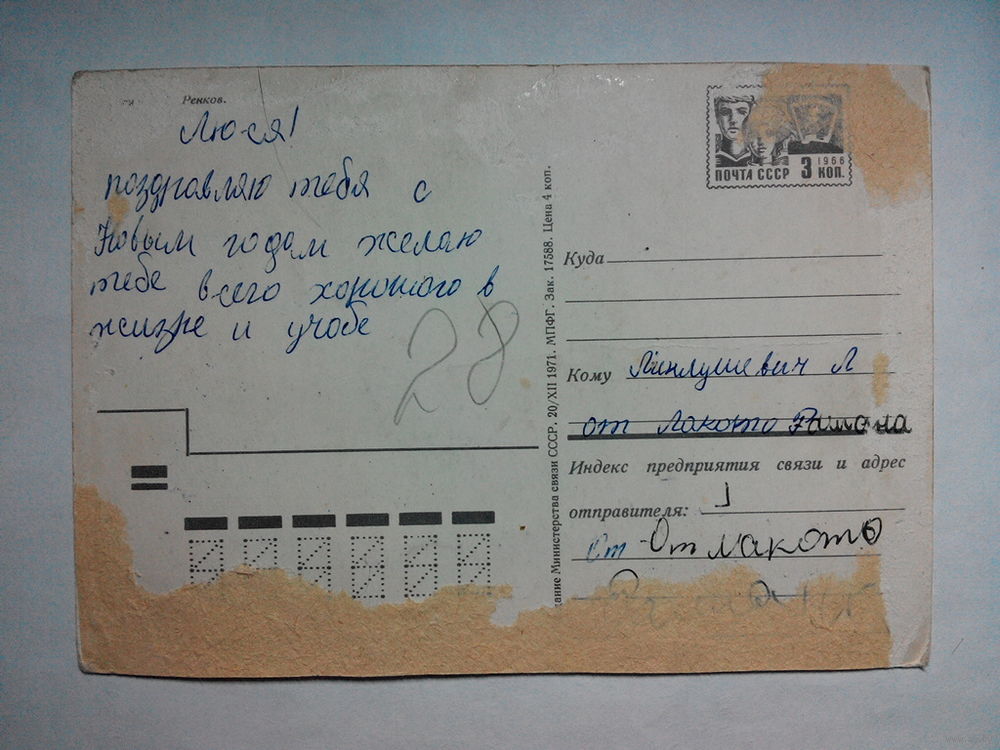 Ренков.
Люся!
поздравляю тебя с
Новым годам желаю
тебе всего хорошого в
жизне и учобе
28
ПОЧТА СССР 3 1966 КОП.
дание Министерства связи СССР. 20/XII 1971. МПФГ. Зак. 17588. Цена 4 коп.
Куда
Кому Л
от Лакото
Индекс предприятия связи и адрес
отправителя:
От От Лакото